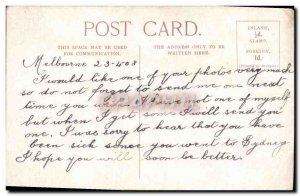 POST CARD.
THIS SPACE MAY BE USED
FOR COMMUNICATION.
THE ADDRESS ONLY TO BE
WRITTEN HERE.
INLAND,
½d.
STAMP.
FOREIGN,
1d.
Melbourne 23-4-08
I would like one of your photos very much
so do not forget to send me one next
time you I have not one of myself
but when I get some I will send you
one. I was sorry to hear that you have
been sick since you went to Sydney
I hope you will soon be better.